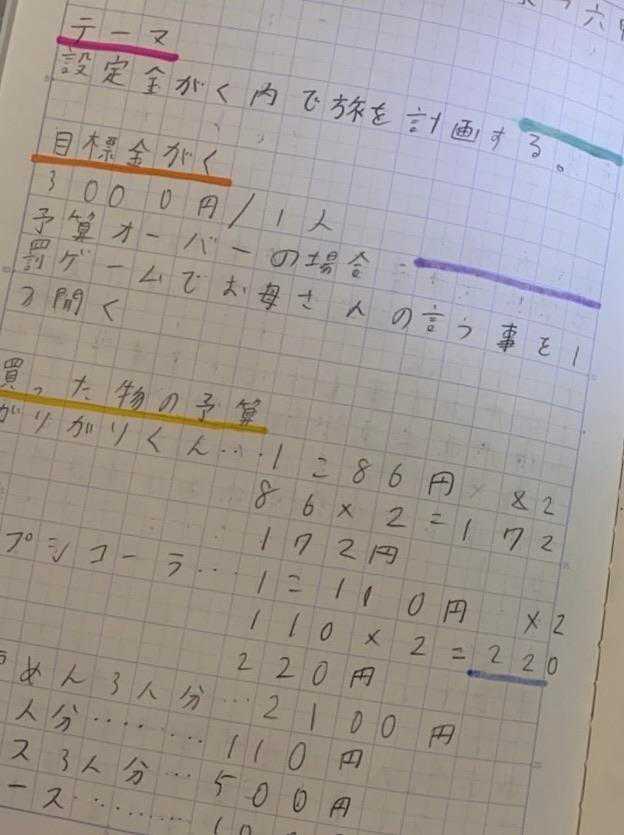 テーマ
設定金がく内で旅を計画する。
目標金がく
3000円/1人
予算オーバーの場合=
罰ゲームでお母さんの言う事を1
つ聞く
買った物の予算
がりがりくん…1=86円 82
86×2=172
172円
プシコーラ…1=110円 ×2
110×2=220
220円
めん3人分…2100円
人分………110円
ス3人分…500円
ース………10